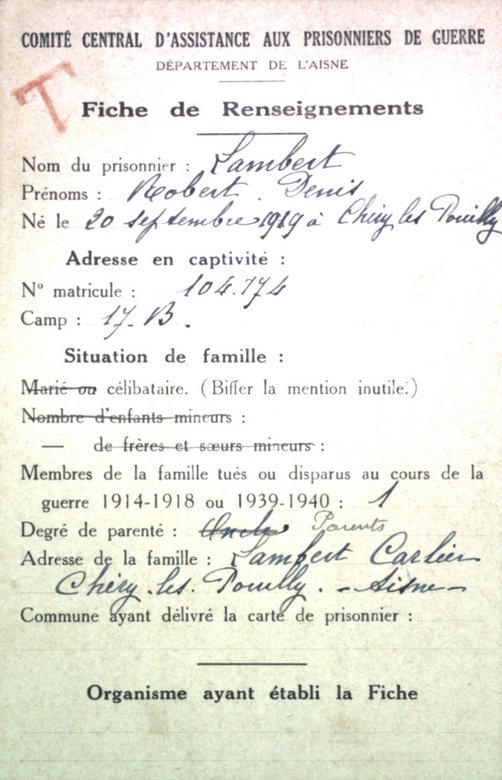 COMITÉ CENTRAL D'ASSISTANCE AUX PRISONNIERS DE GUERRE
DÉPARTEMENT DE L'AISNE
T
Fiche de Renseignements
Nom du prisonnier : Lambert
Prénoms : Robert Denis
Né le 20 septembre 1919 à Chéry les Pouilly
Adresse en captivité :
N° matricule : 104.774
Camp : 17.B.
Situation de famille :
Marié ou célibataire. (Biffer la mention inutile.)
Nombre d'enfants mineurs :
— de frères et sœurs mineurs :
Membres de la famille tués ou disparus au cours de la
guerre 1914-1918 ou 1939-1940 : 1
Degré de parenté : Oncle Parents
Adresse de la famille : Lambert Carlier
Chéry-les-Pouilly. - Aisne -
Commune ayant délivré la carte de prisonnier :
Organisme ayant établi la Fiche